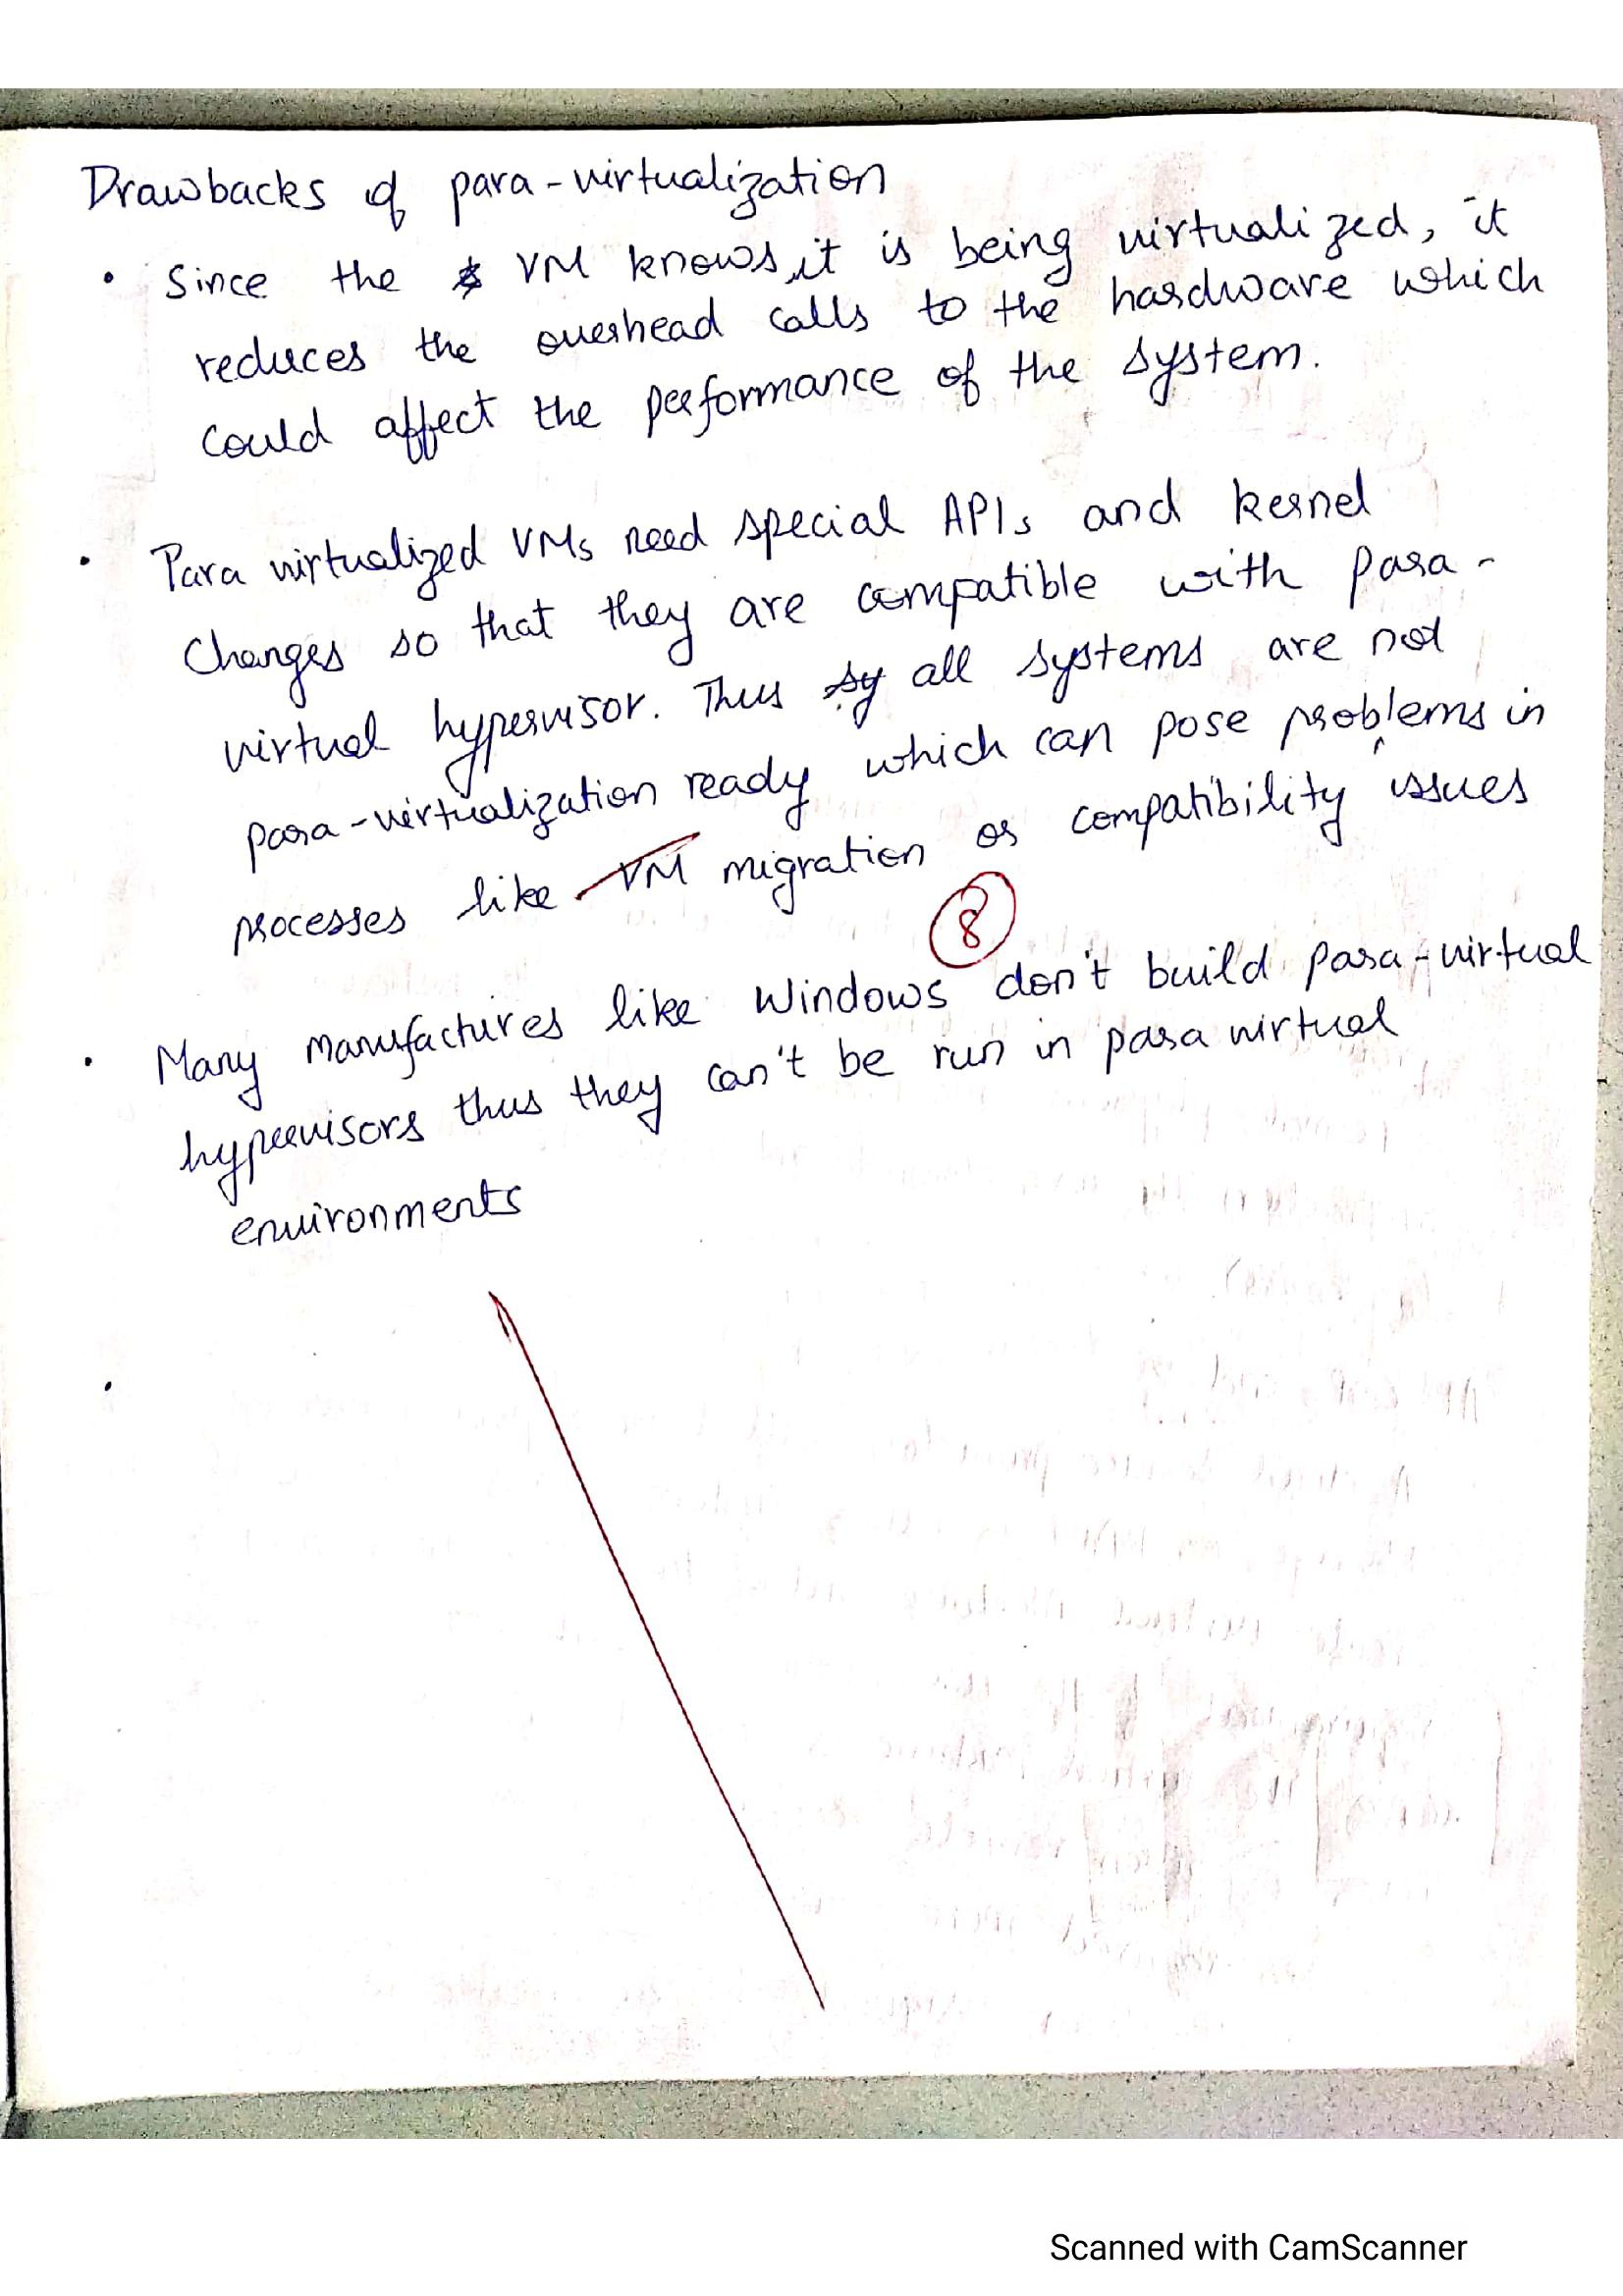 Drawbacks of para-virtualization
• Since the VM knows it is being virtualized, it
reduces the overhead calls to the hardware which
could affect the performance of the system.
• Para virtualized VMs need special APIs and kernel
changes so that they are compatible with para-
virtual hypervisor. Thus sy all systems are not
para-virtualization ready which can pose problems in
processes like VM migration or compatibility issues
8
• Many manufactures like Windows don't build para-virtual
hypervisors thus they can't be run in para virtual
environments
•
Scanned with CamScanner